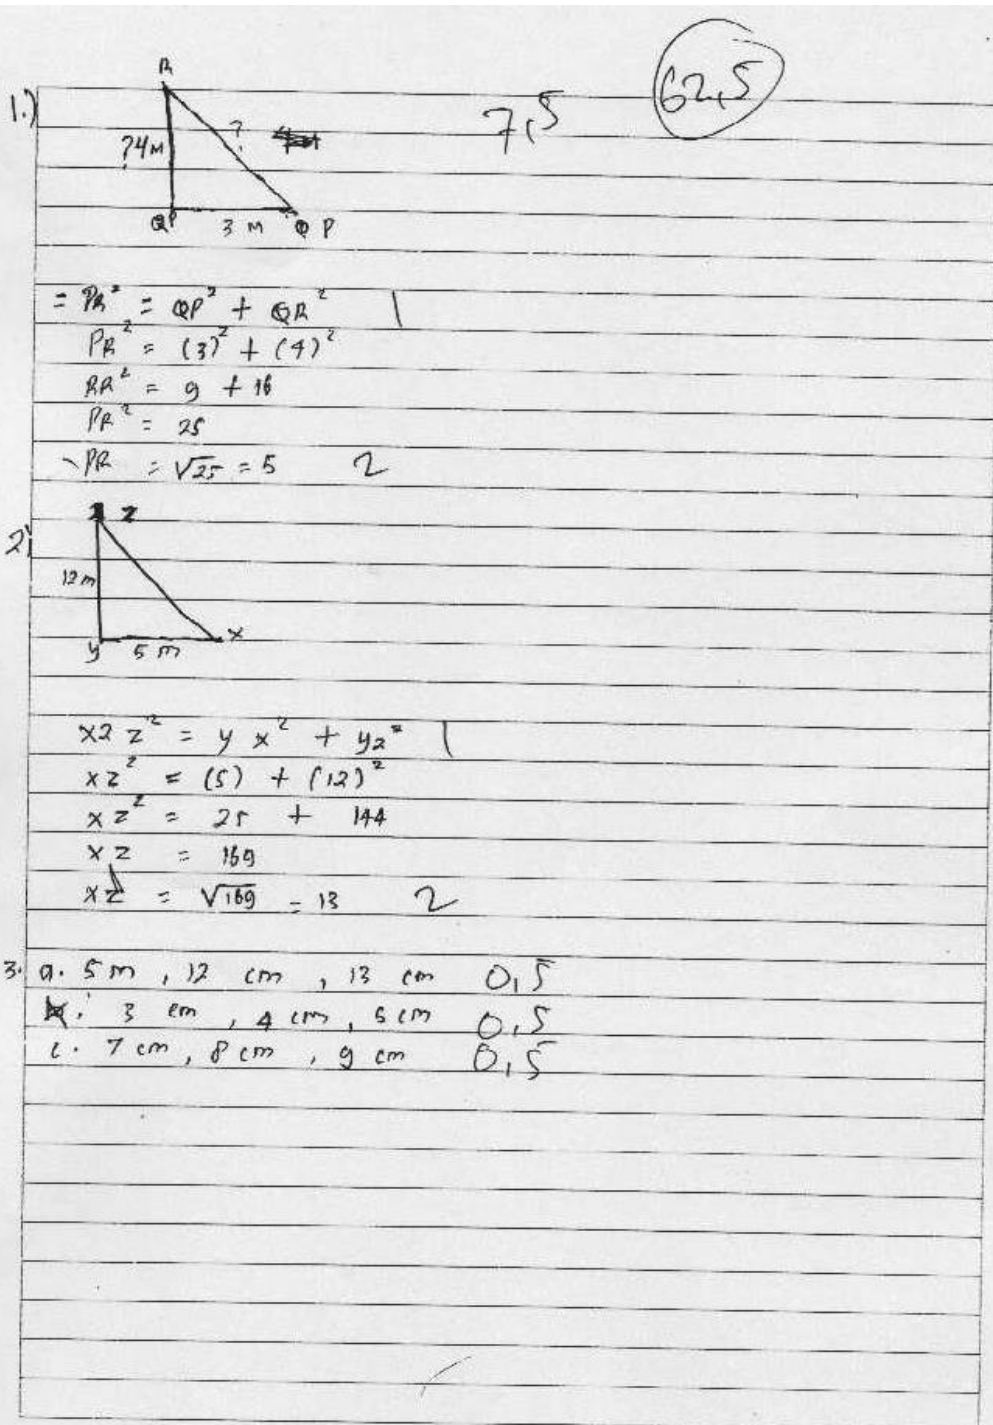 62,5
7,5
1.)
R
?4M
?
QP
3 M
P
= PR² = QP² + QR² 1
PR² = (3)² + (4)²
RR² = 9 + 16
PR² = 25
PR = √25 = 5 2
2)
Z
12m
y
5 m
x
x2 z² = y x² + yz² 1
xz² = (5) + (12)²
xz² = 25 + 144
xz = 169
xz = √169 = 13 2
3. a. 5 m , 12 cm , 13 cm 0,5
3 cm , 4 cm , 5 cm 0,5
c. 7 cm , 8 cm , 9 cm 0,5